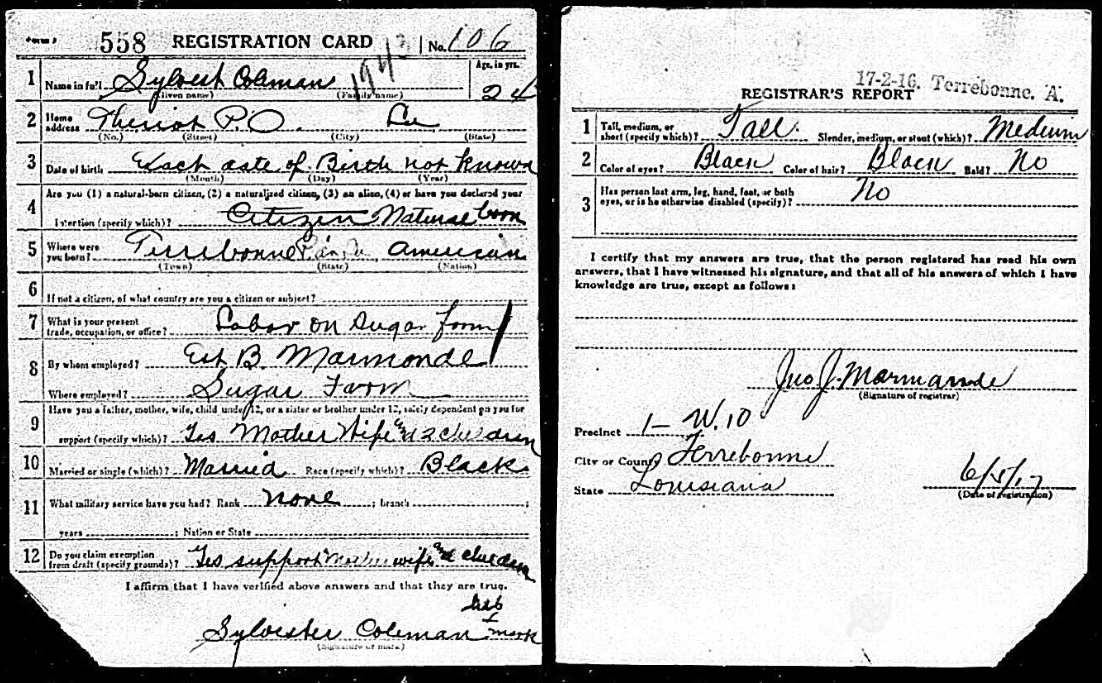 Form 1 558 REGISTRATION CARD No. 106
1 Name in full Sylvest Coleman Age, in yrs. 24
(Given name) (Family name)
2 Home address Theriot P.O. La
(No.) (Street) (City) (State)
3 Date of birth Exact date of Birth not known
(Month) (Day) (Year)
Are you (1) a natural-born citizen, (2) a naturalized citizen, (3) an alien, (4) or have you declared your
4 intention (specify which)? Citizen Natural born
5 Where were you born? Terrebonne Par. La American
(Town) (State) (Nation)
6 If not a citizen, of what country are you a citizen or subject?
7 What is your present trade, occupation, or office? Labor on Sugar farm
8 By whom employed? Est B. Marmonde
Where employed? Sugar Farm
Have you a father, mother, wife, child under 12, or a sister or brother under 12, solely dependent on you for
9 support (specify which)? Yes Mother Wife and 2 children
10 Married or single (which)? Married Race (specify which)? Black
11 What military service have you had? Rank none ; branch ;
years ; Nation or State
12 Do you claim exemption from draft (specify grounds)? Yes support Mother wife and children
I affirm that I have verified above answers and that they are true.
his
x
Sylvester Coleman mark
(Signature or mark)
17-2-16. Terrebonne. 'A.
REGISTRAR'S REPORT
1 Tall, medium, or short (specify which)? Tall. Slender, medium, or stout (which)? Medium
2 Color of eyes? Black Color of hair? Black Bald? No
3 Has person lost arm, leg, hand, foot, or both eyes, or is he otherwise disabled (specify)? No
I certify that my answers are true, that the person registered has read his own
answers, that I have witnessed his signature, and that all of his answers of which I have
knowledge are true, except as follows:
Jno J. Marmande
(Signature of registrar)
Precinct 1 - W. 10
City or County Terrebonne
State Louisiana 6/5/17
(Date of registration)